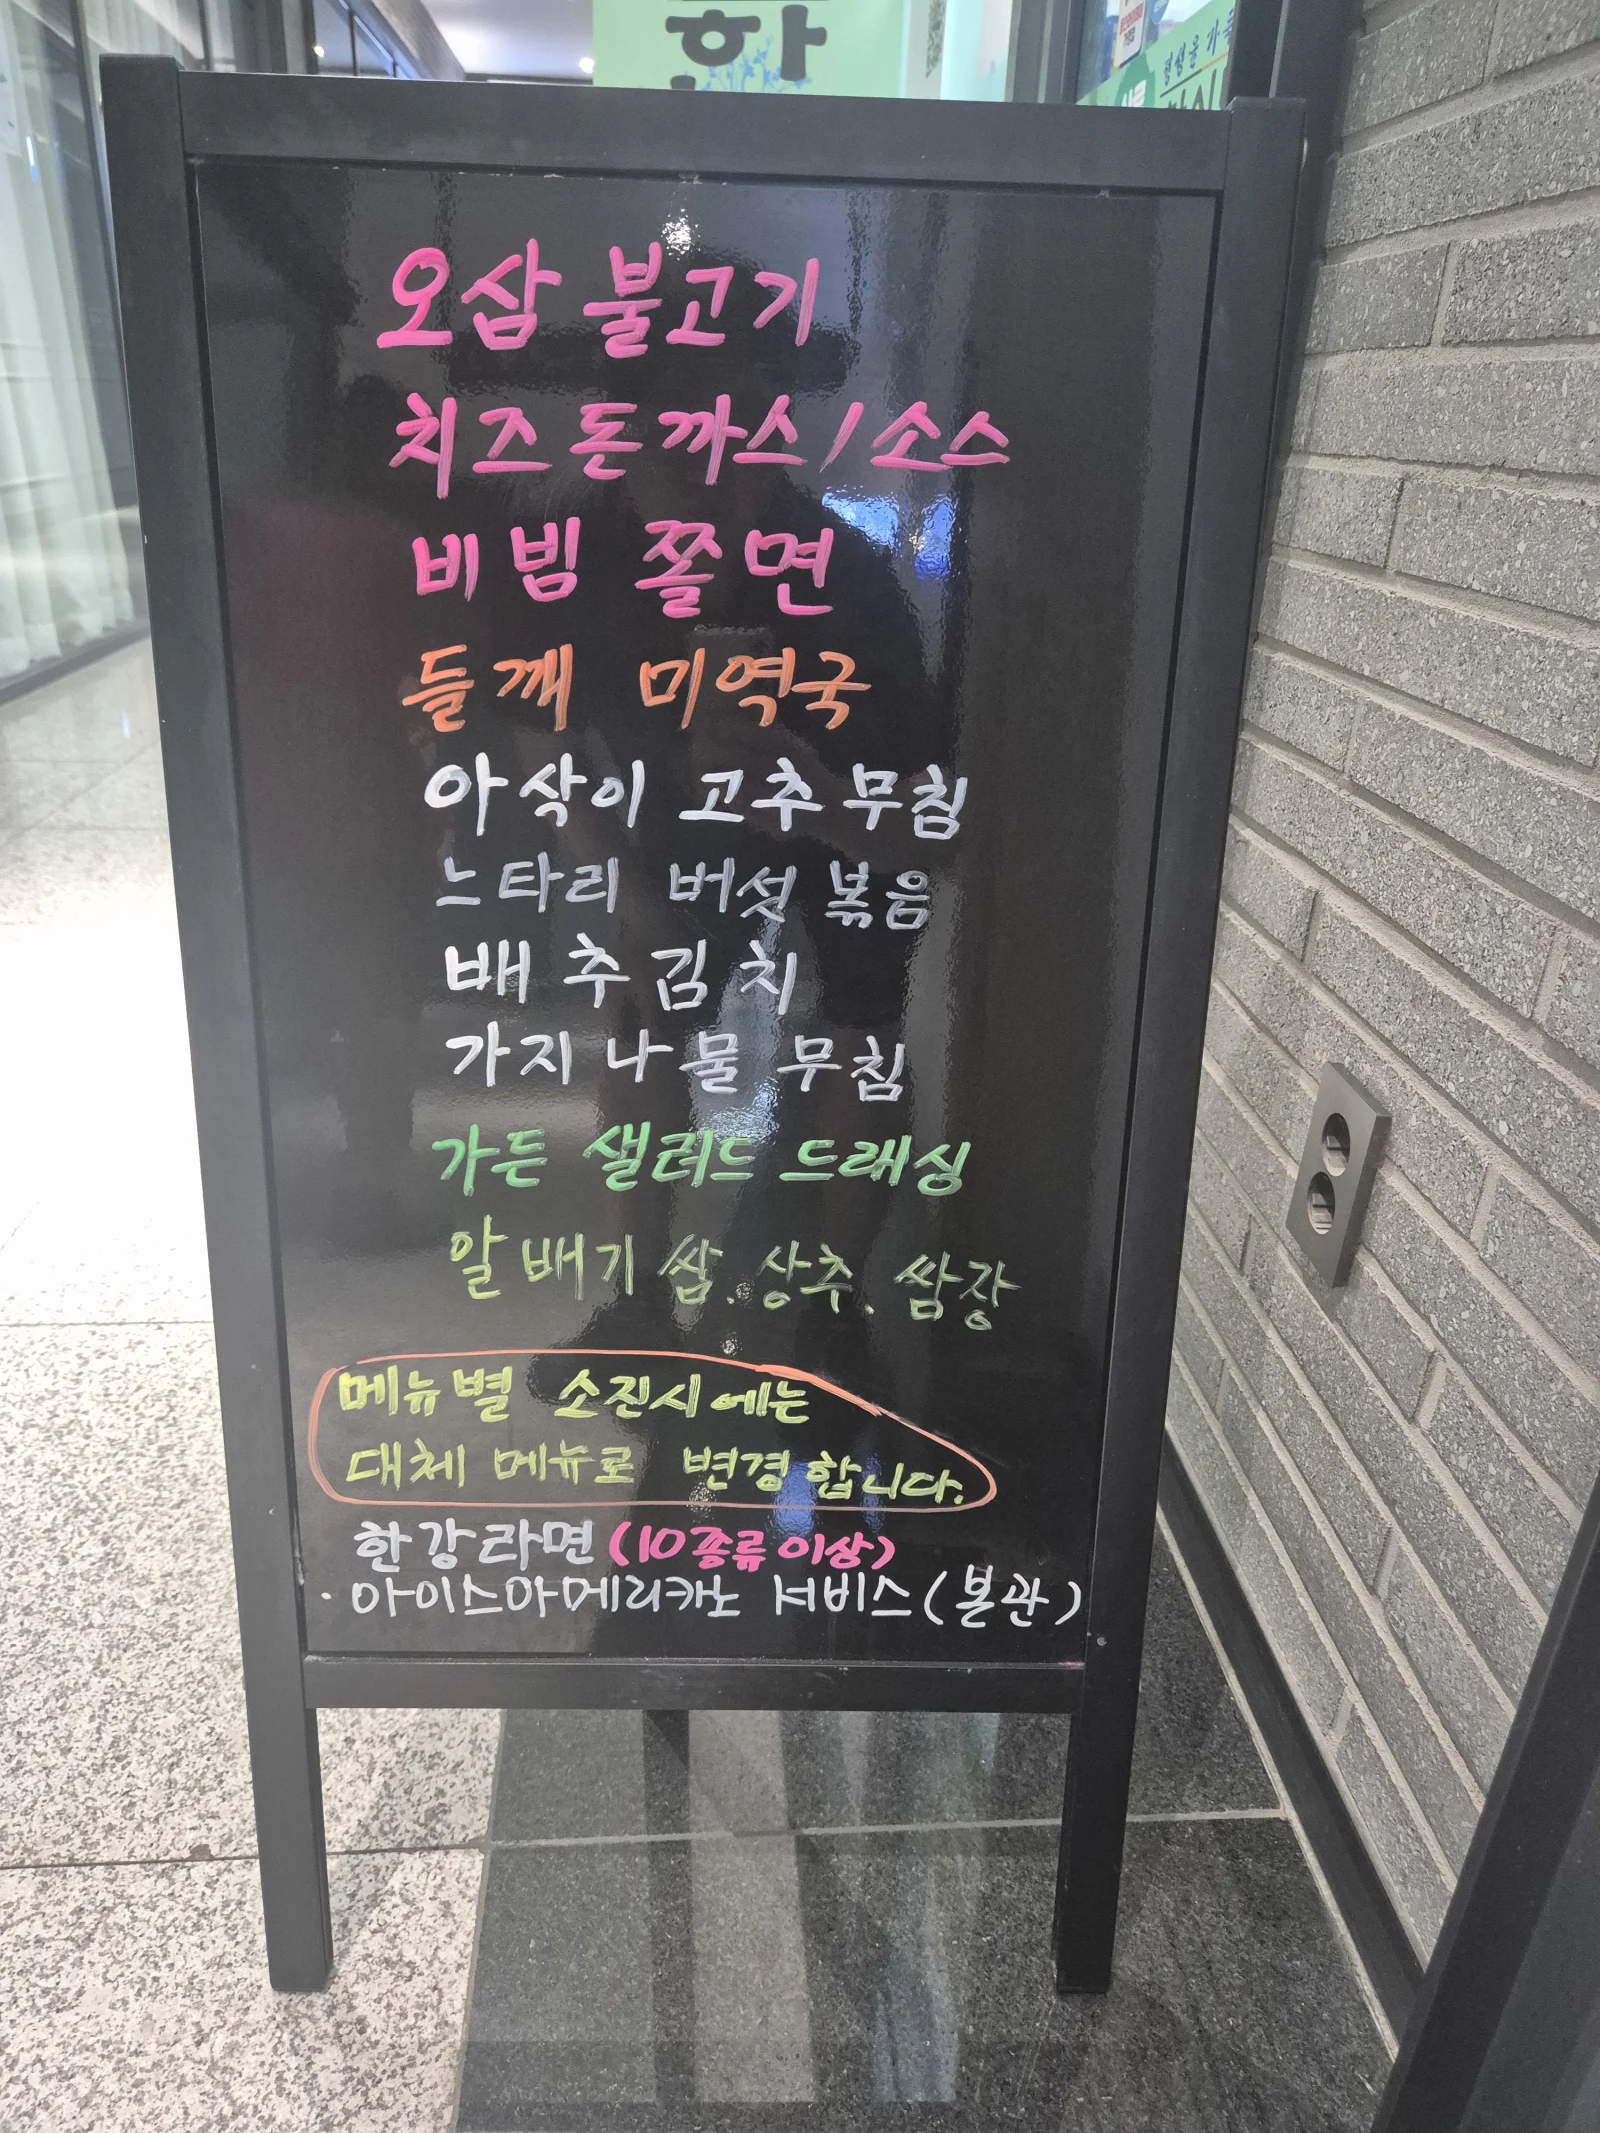 한
평생을 가
오삼 불고기
치즈돈까스/소스
비빔 쫄면
들깨 미역국
아삭이 고추 무침
느타리 버섯 볶음
배추김치
가지나물 무침
가든 샐러드 드래싱
알배기 쌈. 상추. 쌈장
메뉴별 소진시에는
대체 메뉴로 변경합니다.
한강라면(10종류이상)
·아이스아메리카노 서비스(본관)